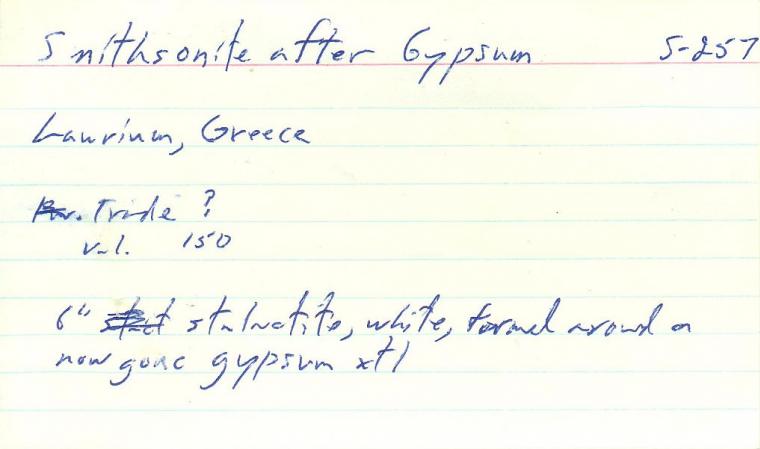 Smithsonite after Gypsum S-257
Laurium, Greece
Trade ?
val. 150
6" stalactite, white, formed around a
now gone gypsum xtl